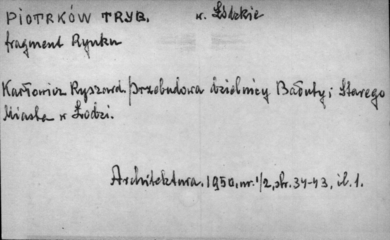 PIOTRKÓW TRYB. w. Łódzkie
fragment Rynku
Karłowicz Ryszard, Przebudowa dzielnicy Bałuty i Starego
Miasta w Łodzi.
Architektura. 1950, nr. 1/2, str. 34-43, il. 1.